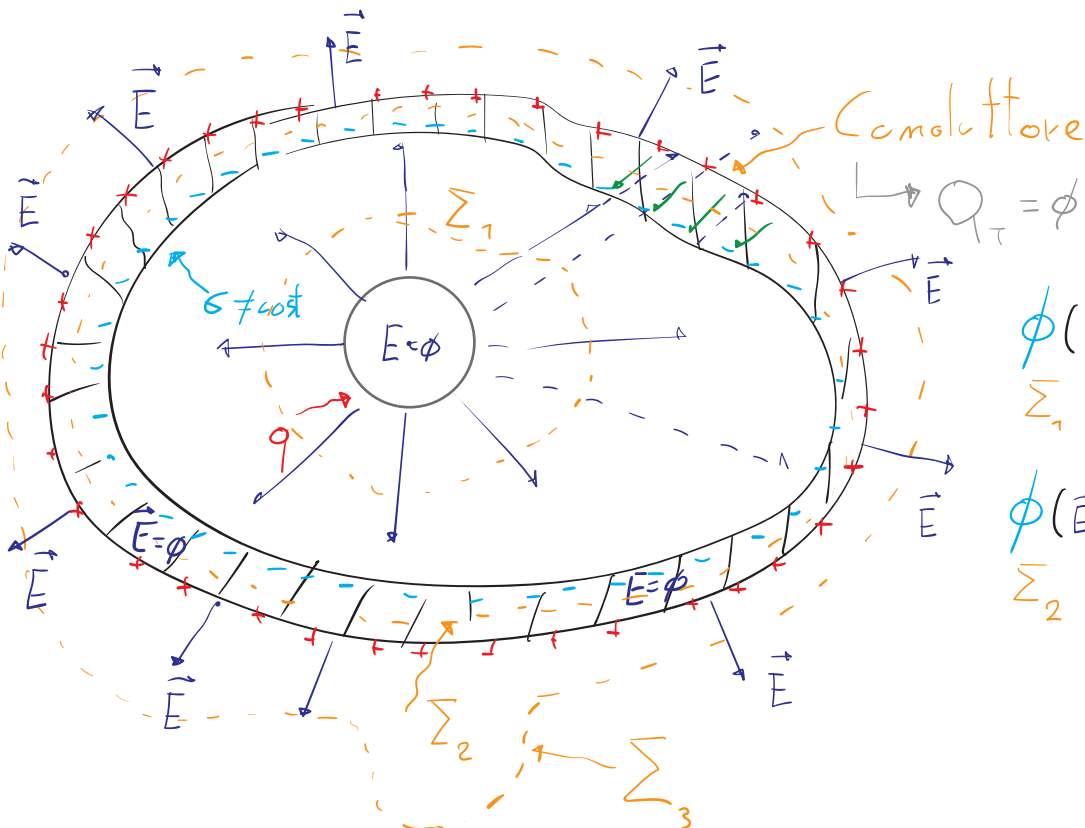 E⃗
E⃗
E⃗
E⃗
Conduttore
Q_T = ϕ
Σ₁
E⃗
σ ≠ cost
E = ϕ
ϕ(
Σ₁
q
E⃗
ϕ(E
Σ₂
E⃗ = ϕ
E⃗ = ϕ
E⃗
E⃗
E⃗
Σ₂
Σ₃